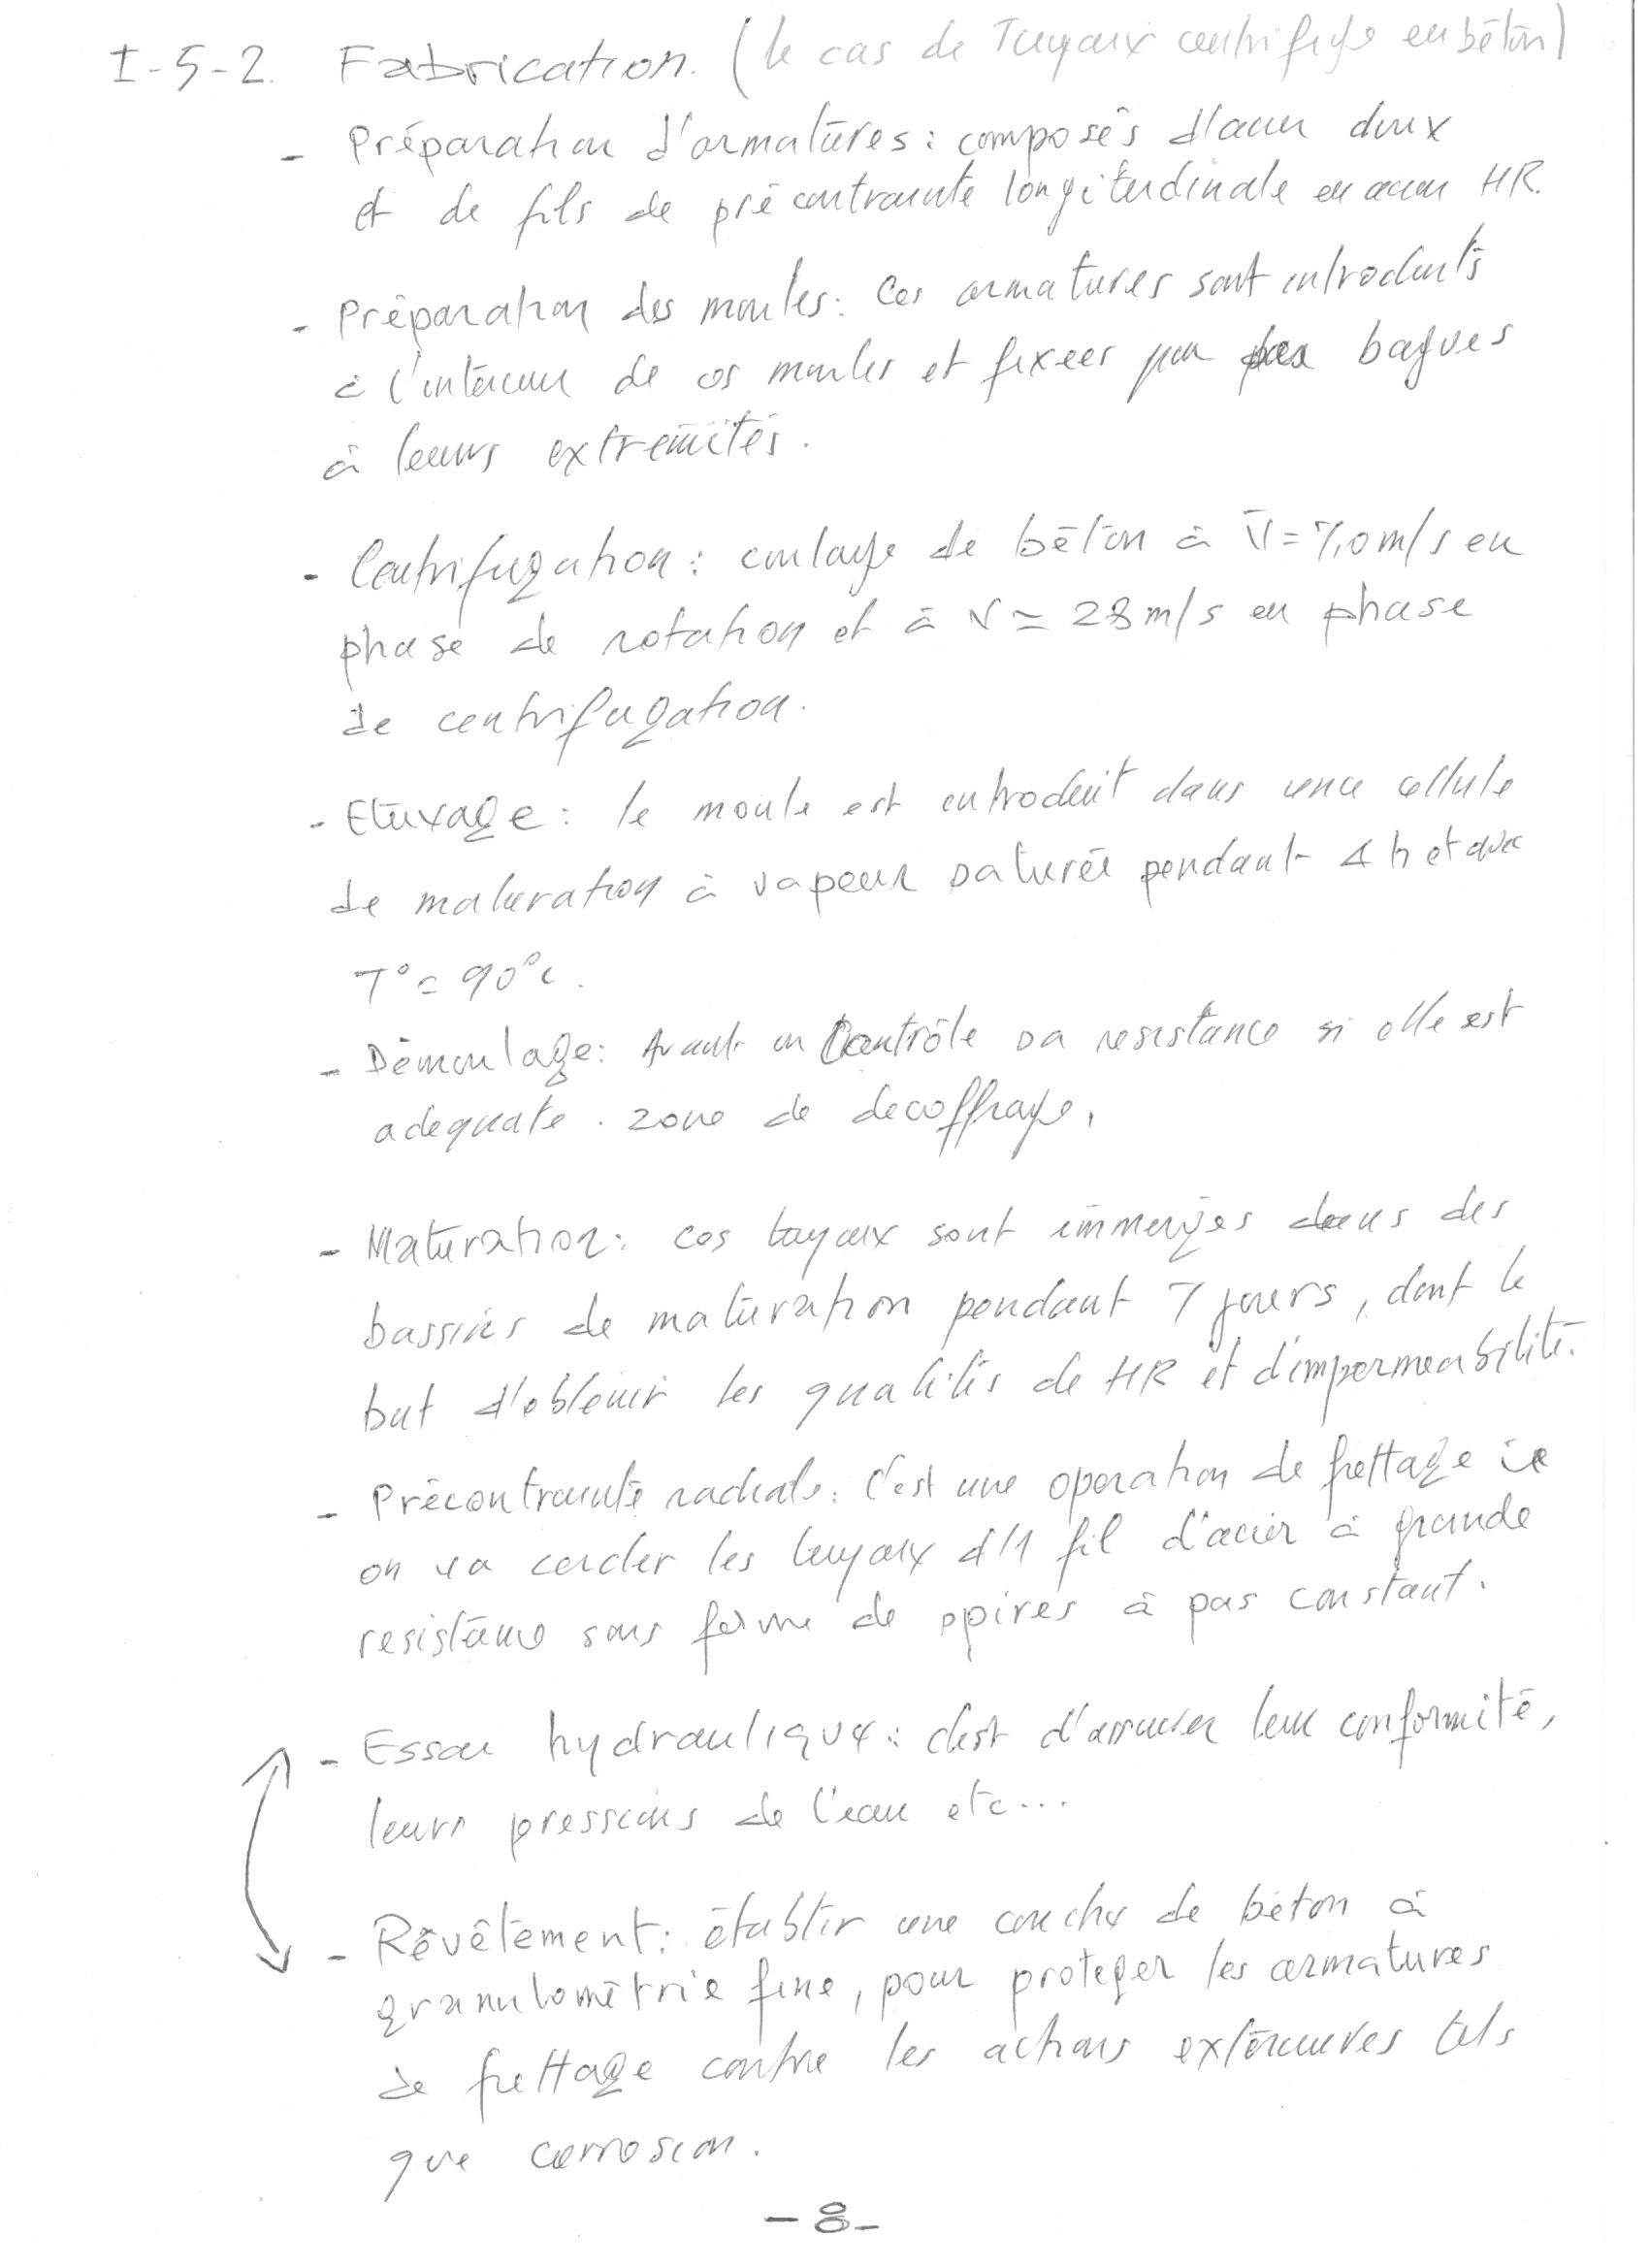 I-5-2. Fabrication. (le cas de Tuyaux centrifugé en béton)
- Préparation d'armatures : composés d'acier doux
et de fils de précontrainte longitudinale en acier HR.
- Préparation des moules : Ces armatures sont introduits
à l'intérieur de ces moules et fixées par des bagues
à leurs extrémités.
- Centrifugation : coulage de béton à V = 7,0 m/s en
phase de rotation et à V = 28 m/s en phase
de centrifugation.
- Etuvage : le moule est introduit dans une cellule
de maturation à vapeur saturée pendant 4 h et avec
T° = 90°c.
- Démoulage : Avant on Contrôle sa resistance si elle est
adequate. zone de decoffrage.
- Maturation : ces tuyaux sont immergés dans des
bassins de maturation pendant 7 jours, dont le
but d'obtenir les qualités de HR et d'impermeabilité.
- Précontrainte radiale : C'est une operation de frettage
on va cercler les tuyaux d'1 fil d'acier à grande
resistance sous forme de spires à pas constant.
- Essai hydraulique : c'est d'assurer leur conformité,
leurs pressions de l'eau etc...
- Révêtement : établir une couche de béton à
granulométrie fine, pour proteger les armatures
de frettage contre les actions extérieures tels
que corrosion.
- 8 -